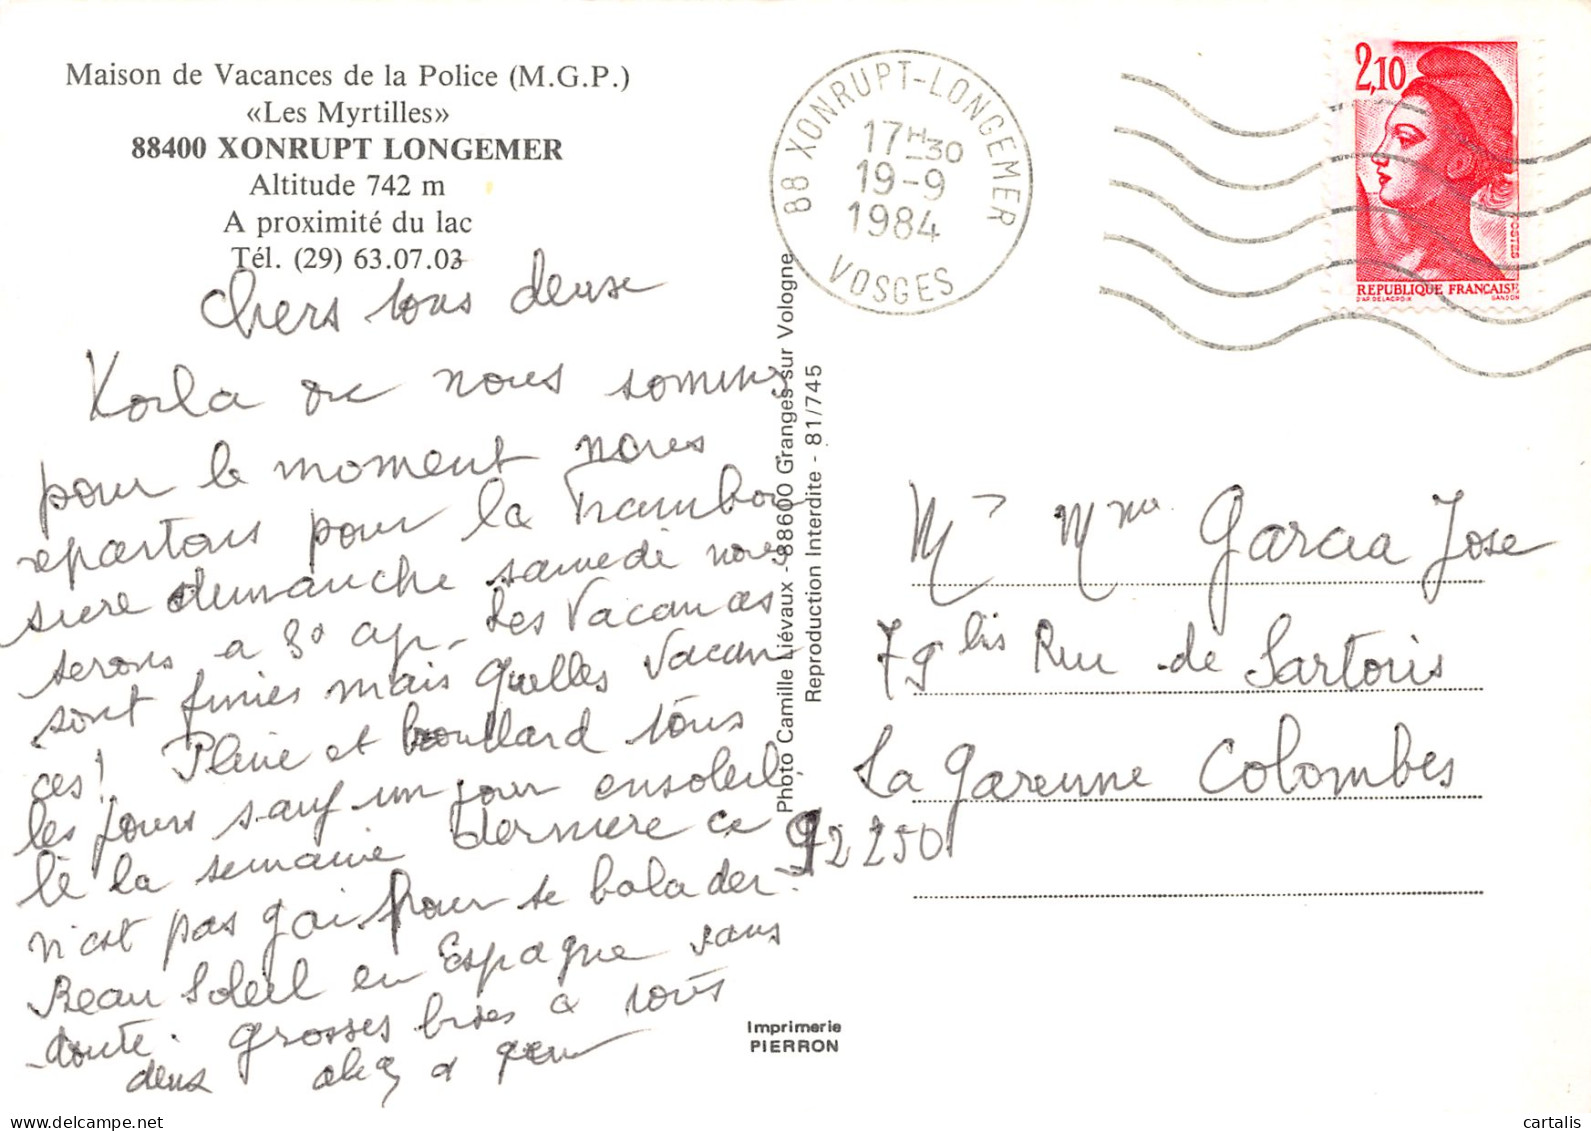 Maison de Vacances de la Police (M.G.P.)
«Les Myrtilles»
88400 XONRUPT LONGEMER
Altitude 742 m
A proximité du lac
Tél. (29) 63.07.03
chers tous deux
Voila ou nous sommes
pour le moment nous
repartons pour la Framboi
siere dimanche samedi nous
serons a 30 ap. Les Vacances
sont finies mais quelles vacan
ces! Pluie et brouillard tous
les jours sauf un jour ensoleil
lé la semaine derniere ce
n'est pas gai pour se balader.
Beau Soleil en Espagne sans
doute. grosses bises a tous
deux
88 XONRUPT-LONGEMER
17H30
19-9
1984
VOSGES
2,10
POSTES
REPUBLIQUE FRANÇAISE
D'AP. DELACROIX GANDON
Photo Camille Liévaux - 88600 Granges-sur Vologne
Reproduction Interdite - 81/745
Mr Mme Garcia Jose
79 bis Rue de Sartoris
La Garenne Colombes
92250
Imprimerie
PIERRON
cartalis
delcampe.net